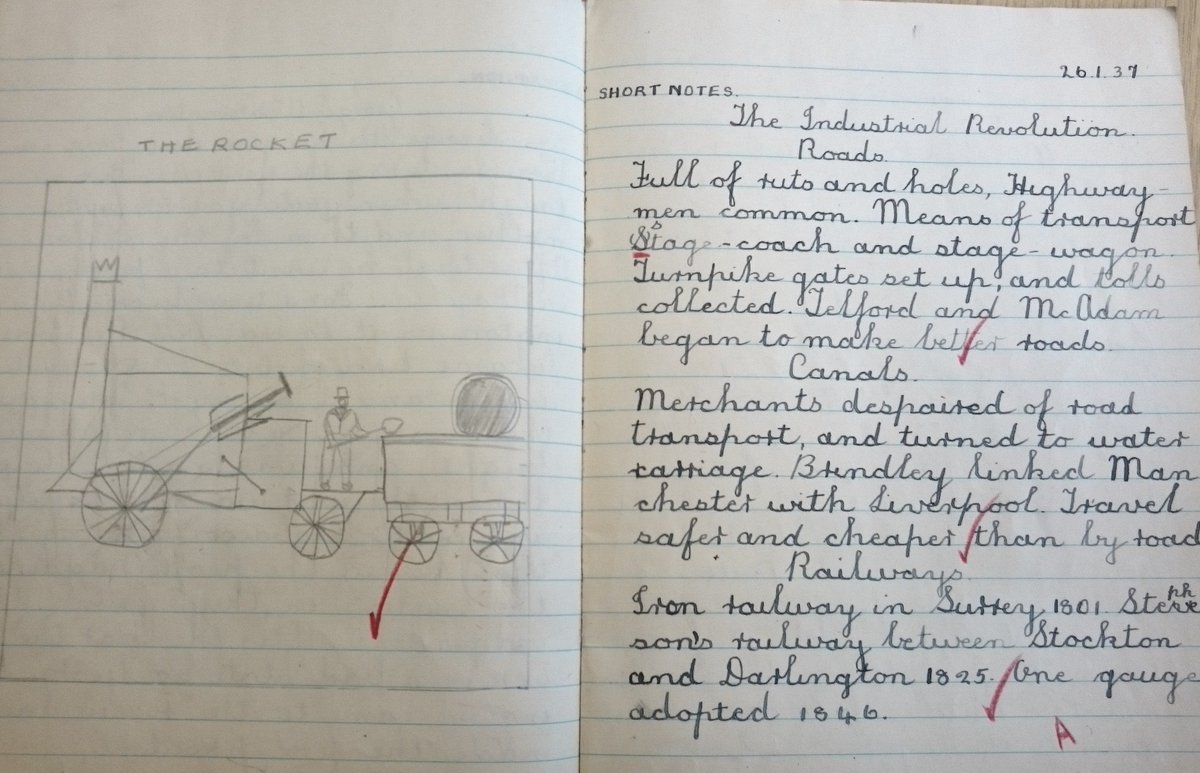 THE ROCKET
26.1.37
SHORT NOTES.
The Industrial Revolution.
Roads.
Full of ruts and holes, Highway-
men common. Means of transport
Stage-coach and stage-wagon.
Turnpike gates set up, and tolls
collected. Telford and McAdam
began to make better roads.
Canals.
Merchants despaired of road
transport, and turned to water
carriage. Brindley linked Man
chester with Liverpool. Travel
safer and cheaper than by road
Railways.
Iron railway in Surrey 1801.
son's railway between Stockton
and Darlington 1825. One gauge
adopted 1846.
A